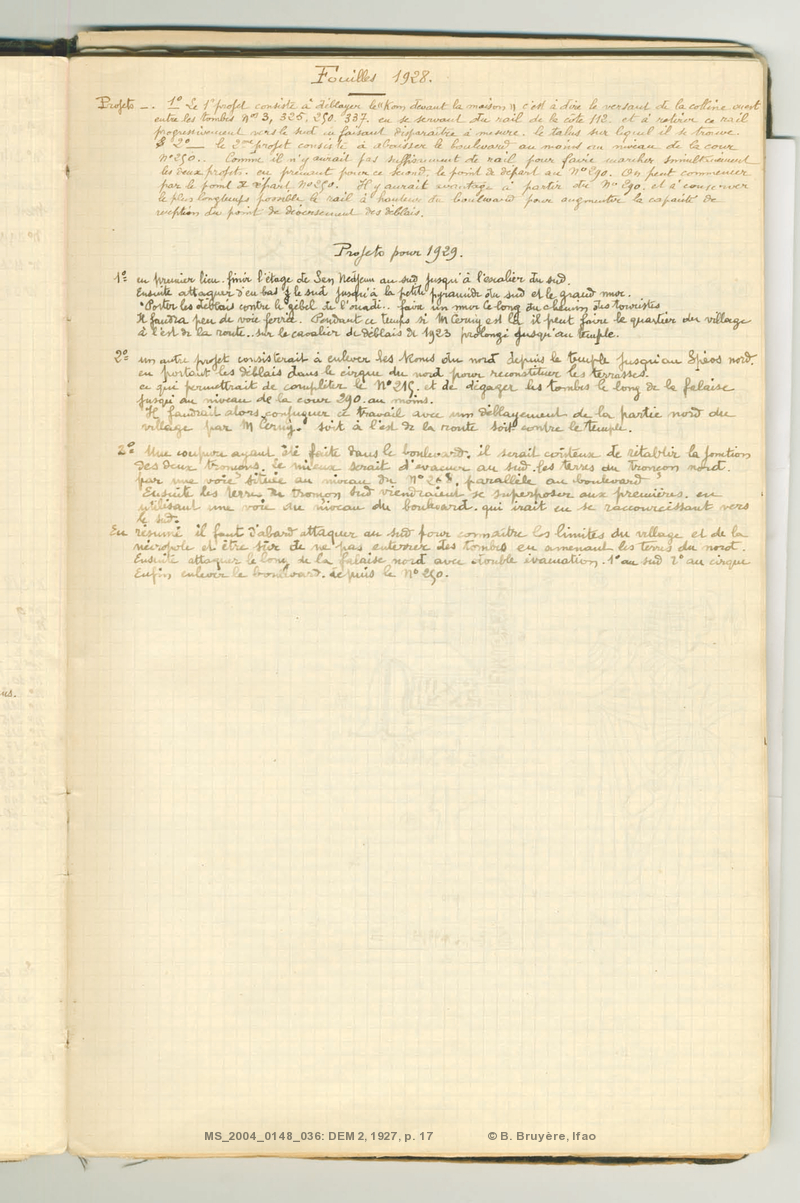 Fouilles 1928.
Projets _. 1º Le 1er projet consiste à déblayer le "Kom devant la maison" c'est à dire le versant de la colline ouest
entre les tombes Nos 3, 325, 290 337. en se servant du rail de la côte 112 et à relever ce rail
progressivement vers le sud en faisant disparaître à mesure le talus sur lequel il se trouve.
2º _ le 2me projet consiste à abaisser le boulevard au moins au niveau de la cour
Nº 290.. Comme il n'y aurait pas suffisamment de rail pour faire marcher simultanément
les deux projets. en prenant pour ce second, le point de départ au Nº 290. On peut commencer
par le point de départ Nº 250. Il y aurait avantage à partir du Nº 290. et à conserver
le plus longtemps possible le rail à hauteur du boulevard pour augmenter la capacité de
réception du point de déversement des déblais.
Projets pour 1929.
1º en premier lieu. finir l'étage de Sen Nedjem au sud jusqu'à l'escalier du sud.
Ensuite attaquer d'en bas le sud jusqu'à la petite pyramide du sud et le grand mur.
Porter les déblais contre le gébel de l'ouadi.. faire un mur le long du chemin des touristes
Il faudra peu de voie ferrée. Pendant ce temps si M Cerny est là il peut faire le quartier du village
à l'est de la route.. sur le cavalier de déblais de 1923 prolongé jusqu'au temple.
2º un autre projet consisterait à enlever les Koms du nord depuis le temple jusqu'au Spéos nord.
en portant les déblais dans le cirque du nord pour reconstituer les terrasses.
ce qui permettrait de compléter le Nº 215. et de dégager les tombes le long de la falaise
jusqu'au niveau de la cour 290. au moins.
Il faudrait alors conjuguer ce travail avec un déblayement de la partie nord du
village par M Cerny. soit à l'est de la route soit contre le temple.
2º Une coupure ayant été faite dans le boulevard. il serait coûteux de rétablir la jonction
des deux tronçons. le mieux serait d'évacuer au sud. les terres du tronçon nord.
par une voie située au niveau du Nº 268. parallèle au boulevard
Ensuite les terres du tronçon sud viendraient se superposer aux premières. en
utilisant une voie du niveau du boulevard. qui irait en se raccourcissant vers
le sud.
En résumé il faut d'abord attaquer au sud pour connaître les limites du village et de la
nécropole et être sûr de ne pas enterrer des tombes en amenant les terres du nord.
Ensuite attaquer le long de la falaise nord avec double évacuation. 1º au sud 2º au cirque
Enfin enlever le boulevard. depuis le Nº 290.
MS_2004_0148_036: DEM 2, 1927, p. 17 © B. Bruyère, Ifao